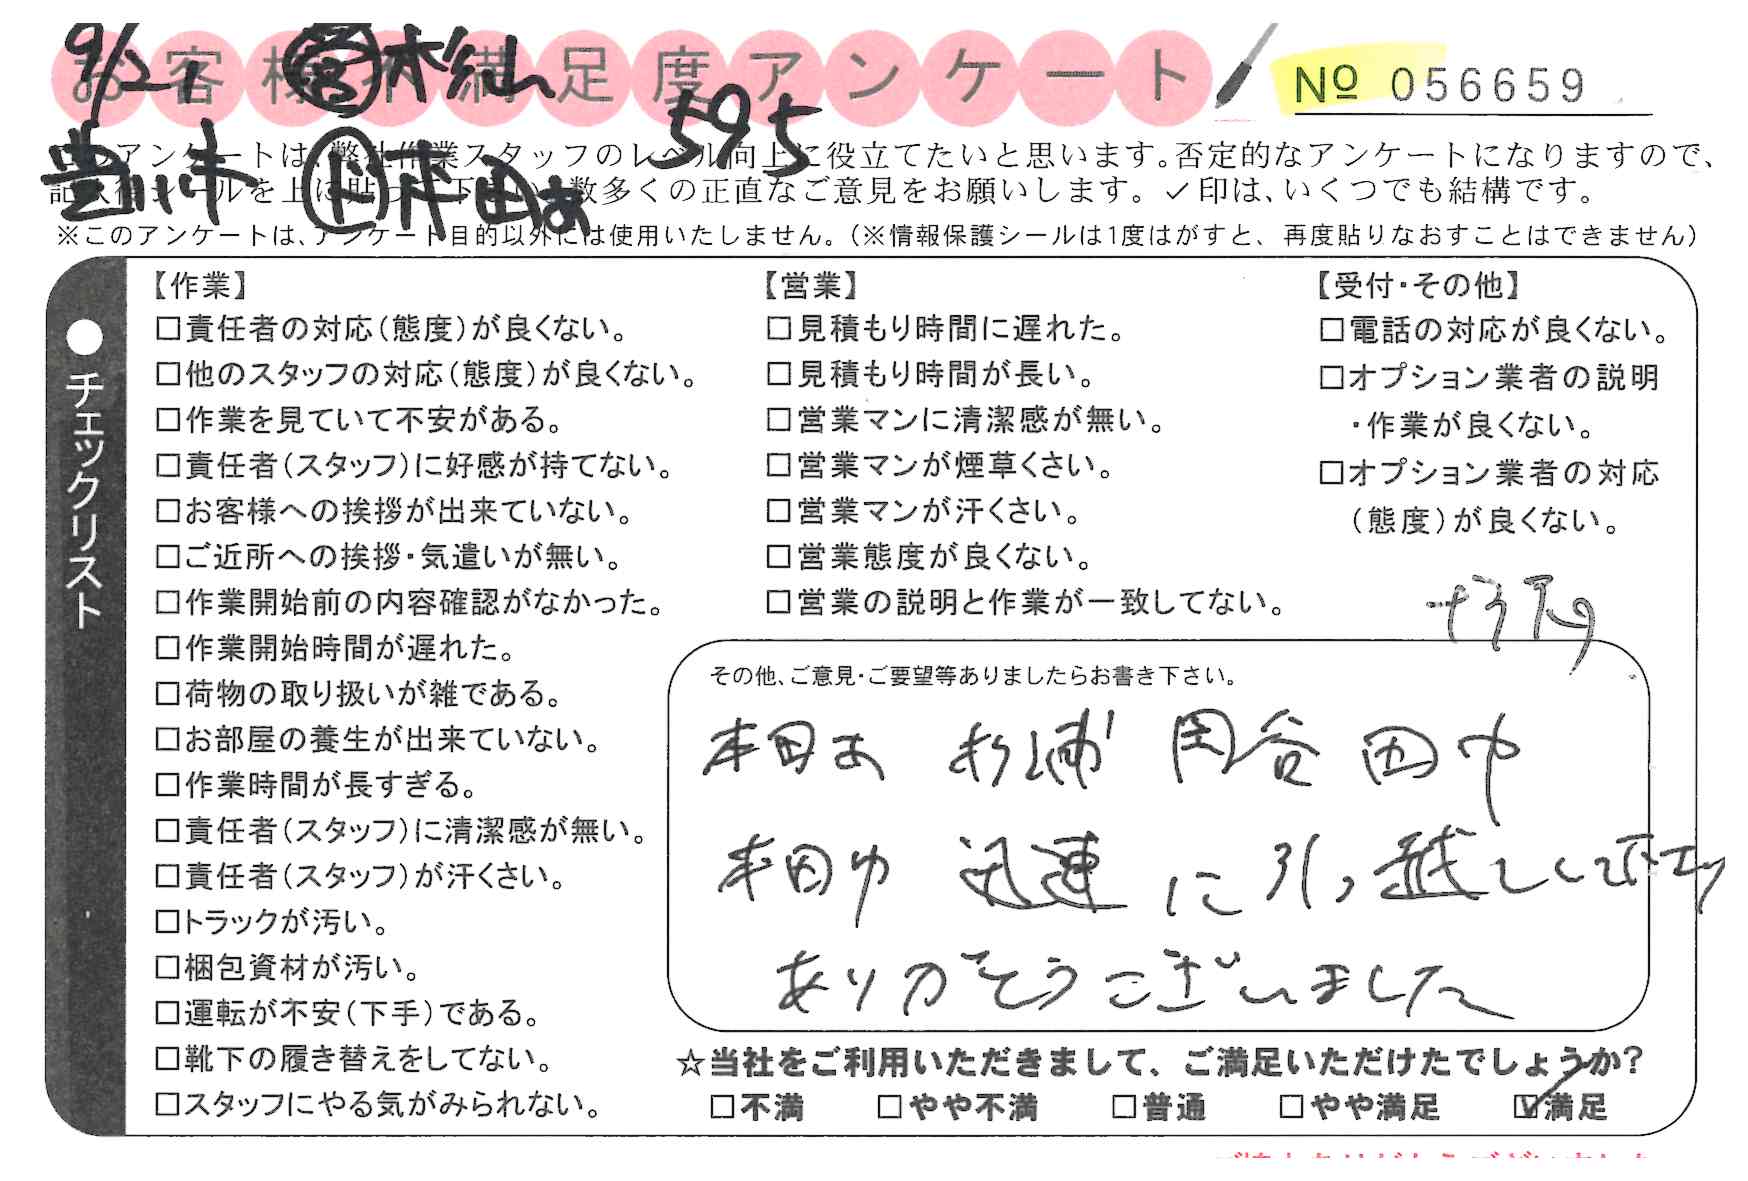 9/21 営 杉山
お客様不満足度アンケート
№ 056659
595
豊川 ド 本田あ
このアンケートは、弊社作業スタッフのレベル向上に役立てたいと思います。否定的なアンケートになりますので、
記入後シールを上に貼って下さい。数多くの正直なご意見をお願いします。✓印は、いくつでも結構です。
※このアンケートは、アンケート目的以外には使用いたしません。(※情報保護シールは1度はがすと、再度貼りなおすことはできません)
●チェックリスト
【作業】
□責任者の対応(態度)が良くない。
□他のスタッフの対応(態度)が良くない。
□作業を見ていて不安がある。
□責任者(スタッフ)に好感が持てない。
□お客様への挨拶が出来ていない。
□ご近所への挨拶・気遣いが無い。
□作業開始前の内容確認がなかった。
□作業開始時間が遅れた。
□荷物の取り扱いが雑である。
□お部屋の養生が出来ていない。
□作業時間が長すぎる。
□責任者(スタッフ)に清潔感が無い。
□責任者(スタッフ)が汗くさい。
□トラックが汚い。
□梱包資材が汚い。
□運転が不安(下手)である。
□靴下の履き替えをしてない。
□スタッフにやる気がみられない。
【営業】
□見積もり時間に遅れた。
□見積もり時間が長い。
□営業マンに清潔感が無い。
□営業マンが煙草くさい。
□営業マンが汗くさい。
□営業態度が良くない。
□営業の説明と作業が一致してない。
【受付・その他】
□電話の対応が良くない。
□オプション業者の説明
・作業が良くない。
□オプション業者の対応
(態度)が良くない。
その他、ご意見・ご要望等ありましたらお書き下さい。
本田あ 杉浦 岡谷 田中
本田ゆ 迅速に引っ越しして下さり
ありがとうございました
☆当社をご利用いただきまして、ご満足いただけたでしょうか?
□不満 □やや不満 □普通 □やや満足 ☑満足